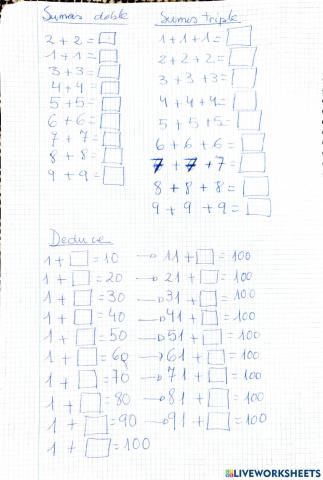 Sumas doble
2 + 2 = □
1 + 1 = □
3 + 3 = □
4 + 4 = □
5 + 5 = □
6 + 6 = □
7 + 7 = □
8 + 8 = □
9 + 9 = □
Sumas triple
1 + 1 + 1 = □
2 + 2 + 2 = □
3 + 3 + 3 = □
4 + 4 + 4 = □
5 + 5 + 5 = □
6 + 6 + 6 = □
7 + 7 + 7 = □
8 + 8 + 8 = □
9 + 9 + 9 = □
Deduce
1 + □ = 10 → 11 + □ = 100
1 + □ = 20 → 21 + □ = 100
1 + □ = 30 → 31 + □ = 100
1 + □ = 40 → 41 + □ = 100
1 + □ = 50 → 51 + □ = 100
1 + □ = 60 → 61 + □ = 100
1 + □ = 70 → 71 + □ = 100
1 + □ = 80 → 81 + □ = 100
1 + □ = 90 → 91 + □ = 100
1 + □ = 100
LIVEWORKSHEETS